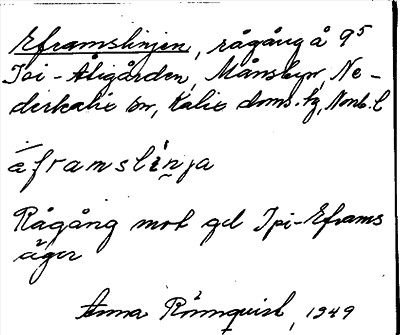 Eframslinjen, rågång å 9⁵
Ipi-Åligården, Månsbyn, Ne-
derkalix sn, Kalix doms.tg, Nonb.l
æ̀framslìnja
Rågång mot gd Ipi-Eframs
äger
Anna Rönnquist, 1949